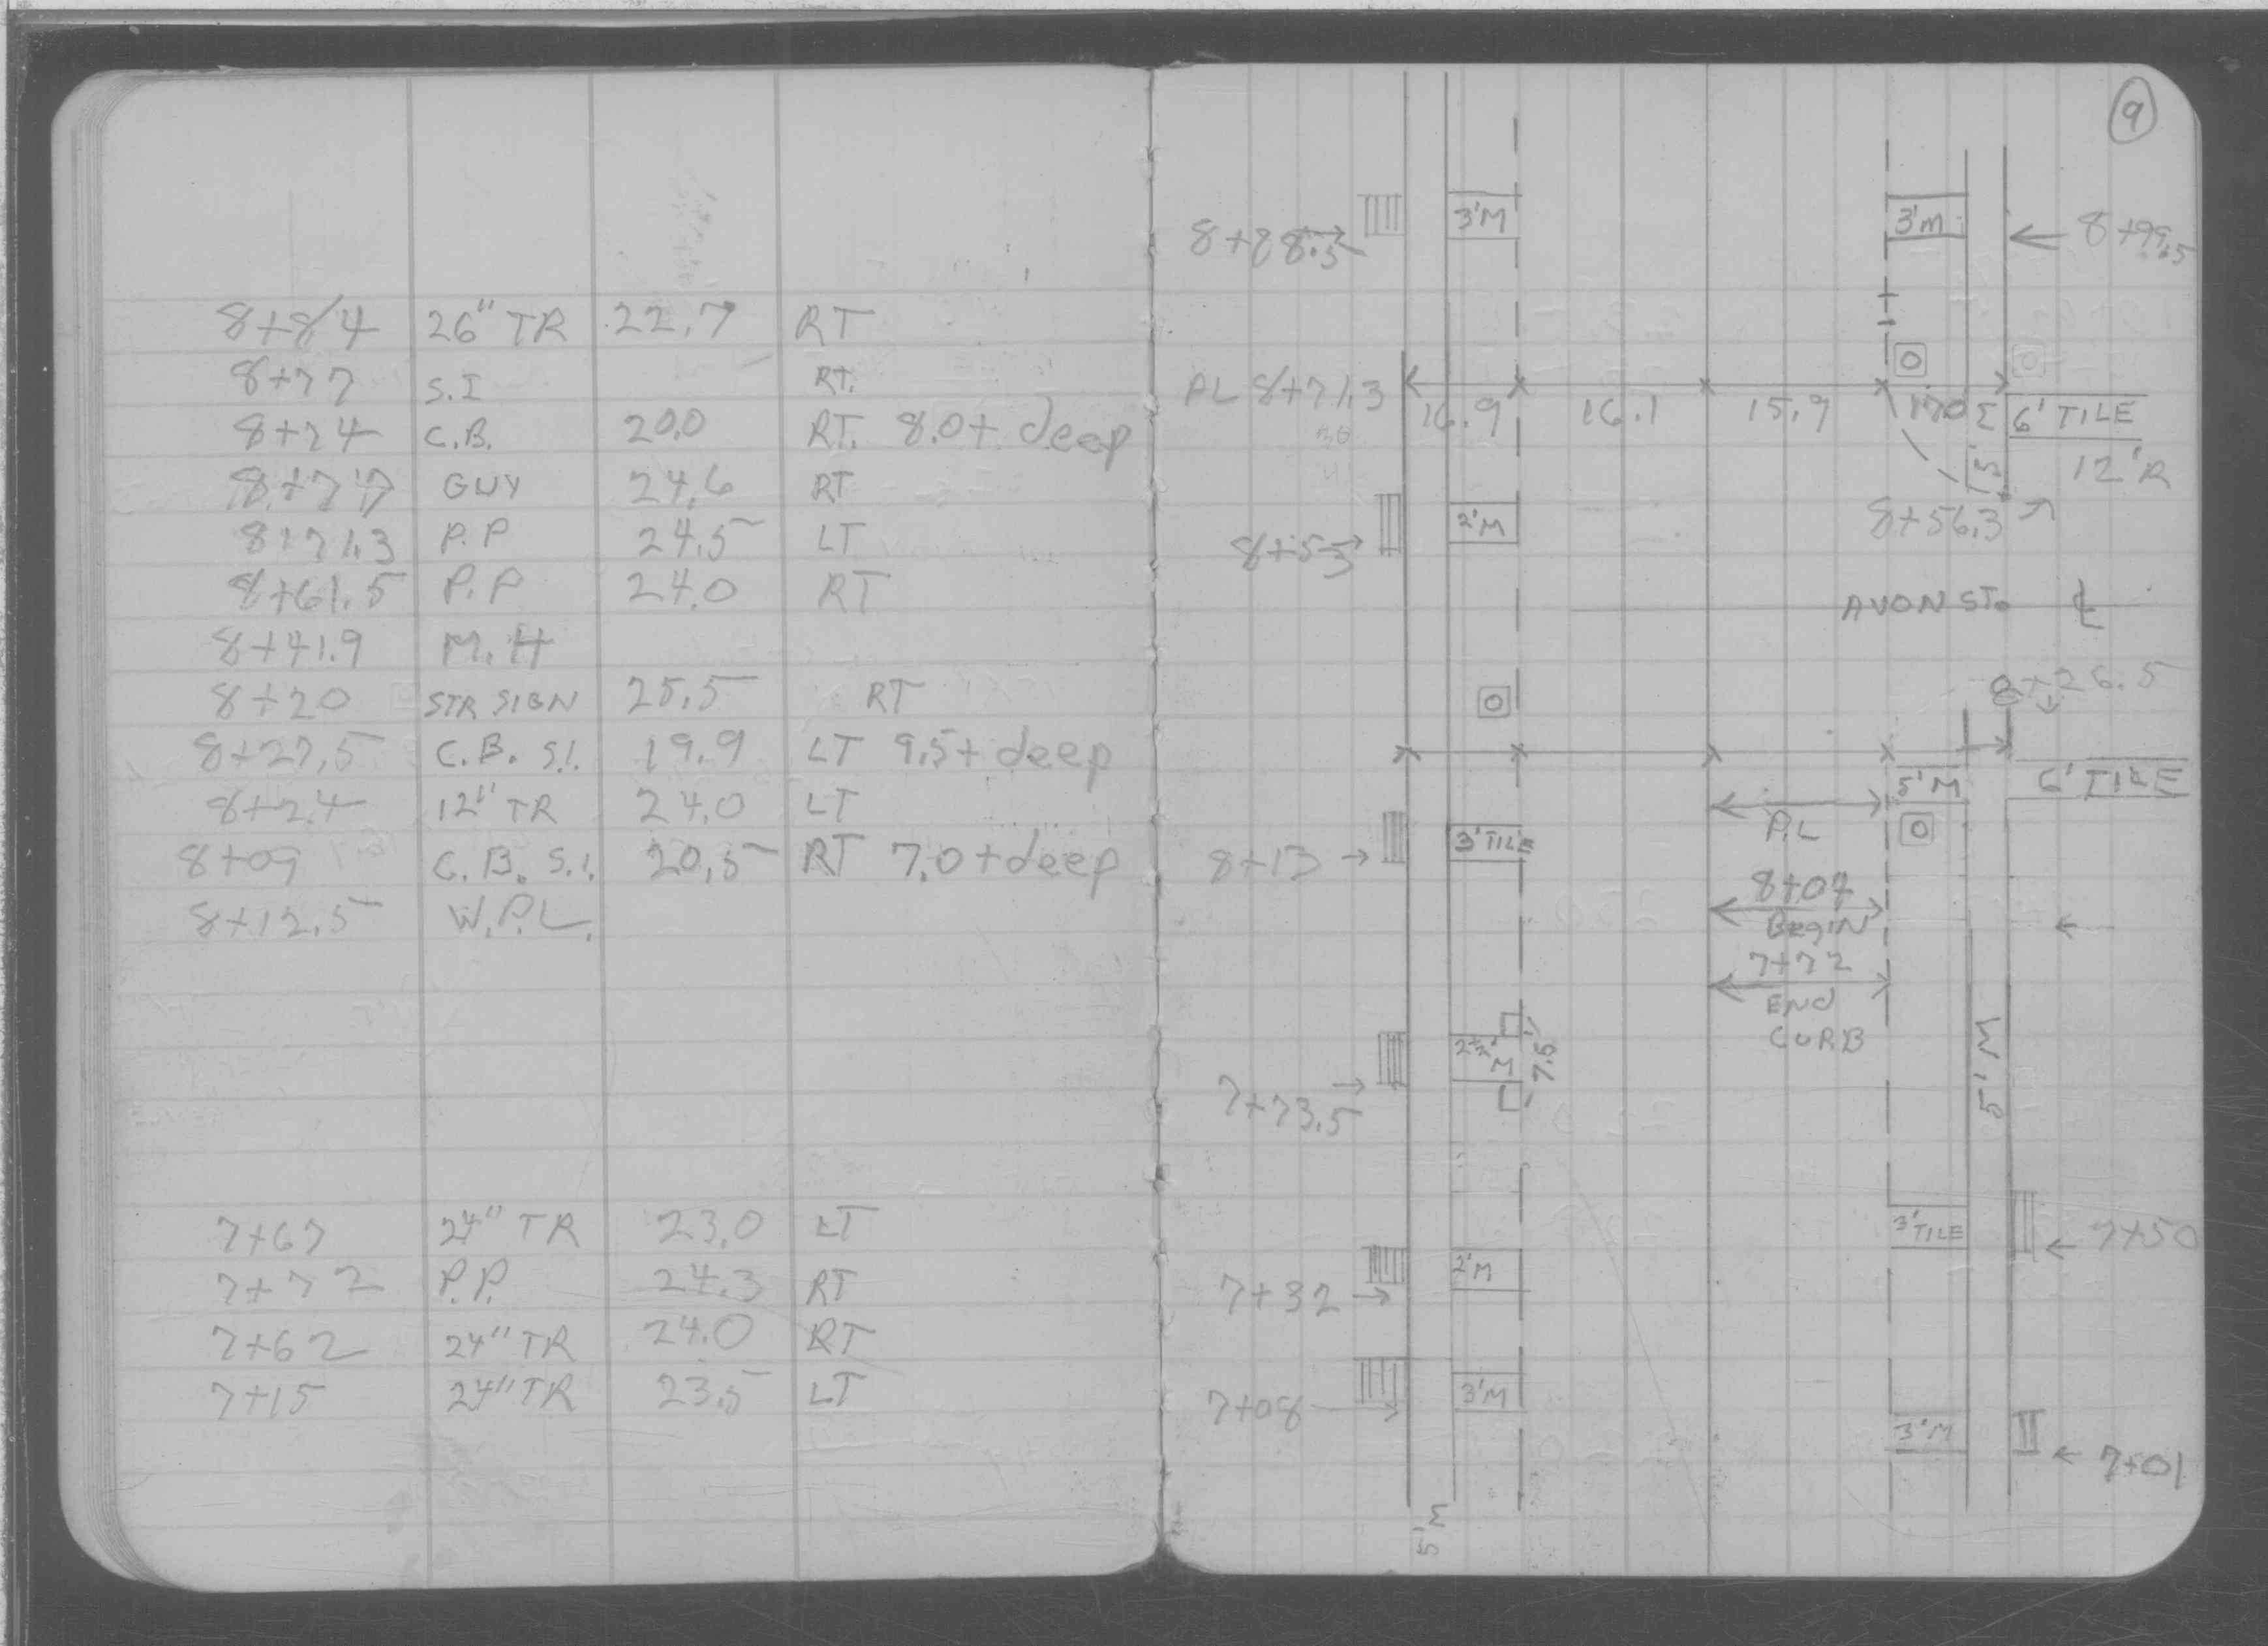 8+84 26" TR 22.7 RT
8+77 S.I RT.
8+74 C.B. 20.0 RT. 8.0+ deep
8+77 GUY 24.6 RT
8+71.3 P.P 24.5 LT
8+61.5 P.P 24.0 RT
8+41.9 M.H
8+20 STR SIGN 25.5 RT
8+27.5 C.B. S.I. 19.9 LT 9.5+ deep
8+24 12" TR 24.0 LT
8+09 C.B. S.I. 20.5 RT 7.0+deep
8+12.5 W.P.L.
7+67 24" TR 23.0 LT
7+72 P.P. 24.3 RT
7+62 24" TR 24.0 RT
7+15 24" TR 23.5 LT
9
8+88.5 3'M 3'M 8+99.5
PL 8+71.3 16.9 16.1 15.9 17.0 6' TILE
5' M
12'R
8+53 2'M 8+56.3
AVON ST. ℄
8+26.5
5'M 6' TILE
P.L
8+13 3' TILE
8+07
BegIN
7+72
ENd
CURB
2½' M 7.5'
7+73.5
5'M
3' TILE 7+50
7+32 2'M
7+08 3'M
3'M 7+01
5'M